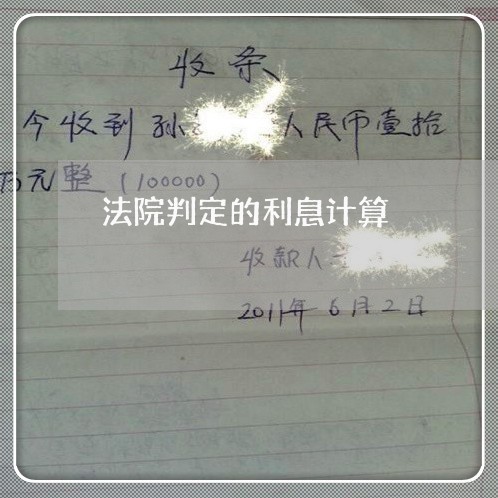 收条
今收到孙人民币壹拾
万元整(100000)
法院判定的利息计算
收款人
2011年6月2日